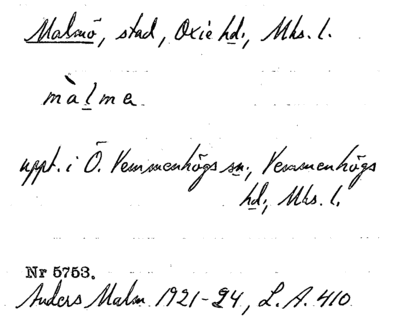 Malmö, stad, Oxie hd., Mhs. l.
màlma
uppt. i Ö. Vemmenhögs sn., Vemmenhögs
hd., Mhs. l.
Nr 5753.
Anders Malm 1921-24, L. A. 410